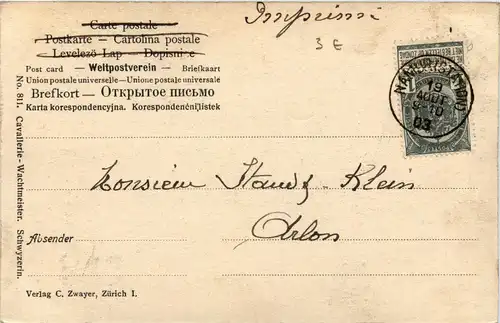 Carte postale
Postkarte — Cartolina postale
Levelező Lap — Dopisnice
Post card — Weltpostverein — Briefkaart
Union postale universelle — Unione postale universale
Brefkort — Открытое письмо
Karta korespondencyjna. Korespondenčnílístek
Imprimé
3 E
NAMUR (STATION)
19
AOUT
03
Monsieur Klein
Arlon
Absender
No. 811. Cavallerie-Wachtmeister. Schwyzerin.
Verlag C. Zwayer, Zürich I.